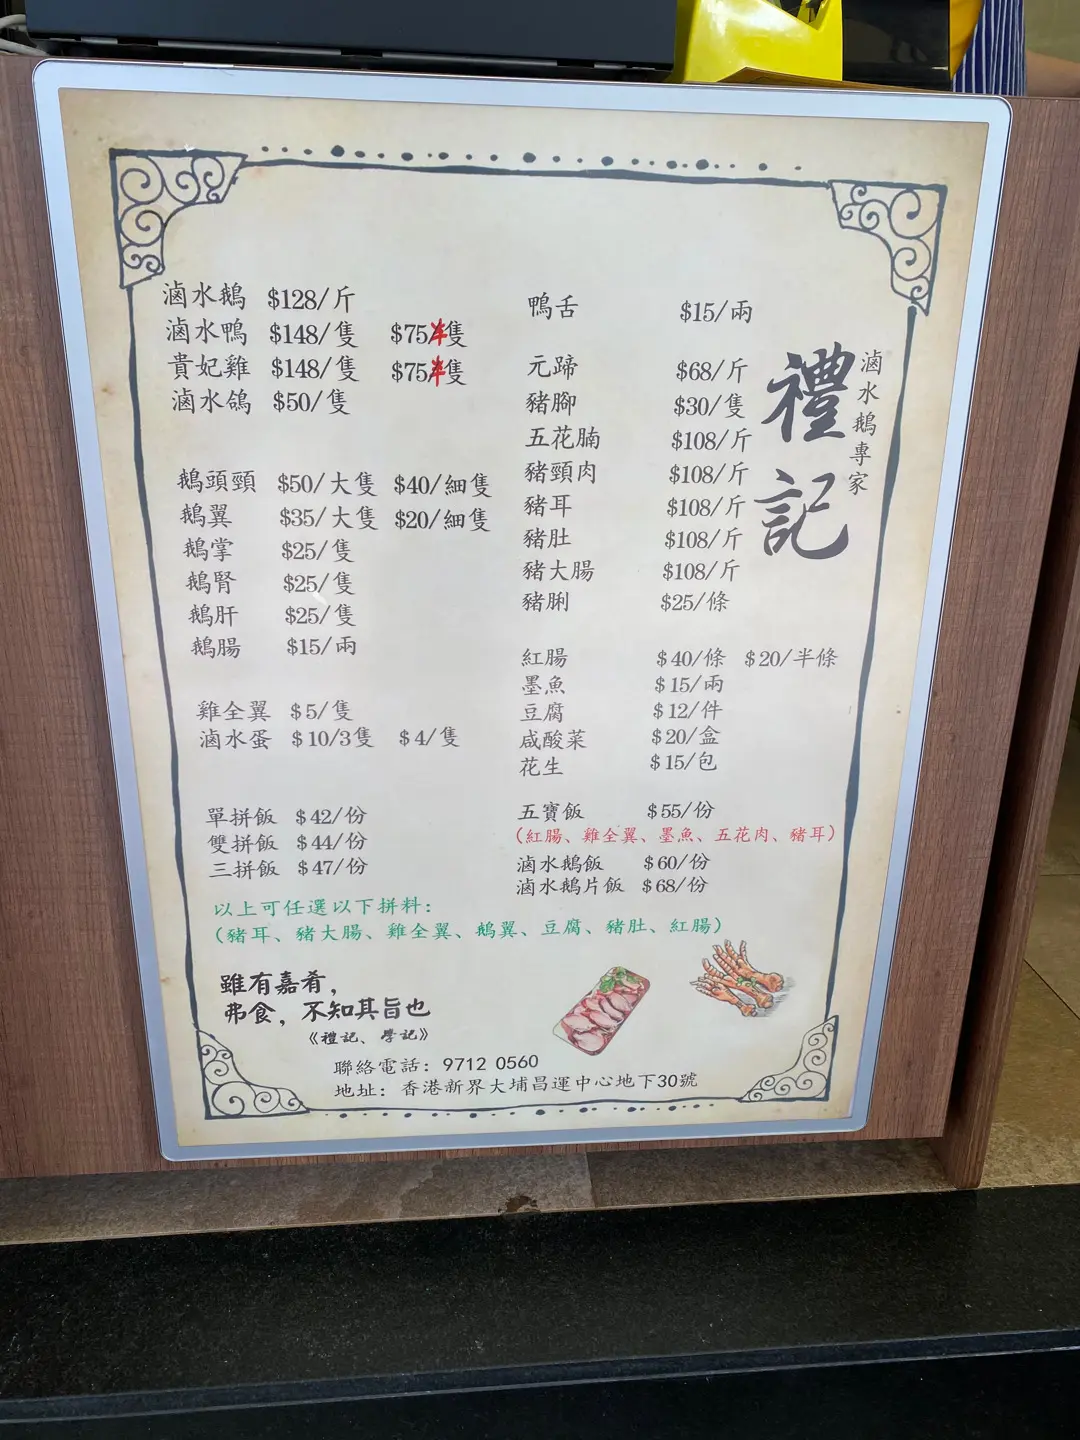 滷水鵝 $128/斤
滷水鴨 $148/隻 $75半隻
貴妃雞 $148/隻 $75半隻
滷水鴿 $50/隻
鵝頭頸 $50/大隻 $40/細隻
鵝翼 $35/大隻 $20/細隻
鵝掌 $25/隻
鵝腎 $25/隻
鵝肝 $25/隻
鵝腸 $15/兩
雞全翼 $5/隻
滷水蛋 $10/3隻 $4/隻
單拼飯 $42/份
雙拼飯 $44/份
三拼飯 $47/份
鴨舌 $15/兩
元蹄 $68/斤
豬腳 $30/隻
五花腩 $108/斤
豬頸肉 $108/斤
豬耳 $108/斤
豬肚 $108/斤
豬大腸 $108/斤
豬脷 $25/條
紅腸 $40/條 $20/半條
墨魚 $15/兩
豆腐 $12/件
咸酸菜 $20/盒
花生 $15/包
五寶飯 $55/份
(紅腸、雞全翼、墨魚、五花肉、豬耳)
滷水鵝飯 $60/份
滷水鵝片飯 $68/份
以上可任選以下拼料:
(豬耳、豬大腸、雞全翼、鵝翼、豆腐、豬肚、紅腸)
滷水鵝專家
禮記
雖有嘉肴,
弗食, 不知其旨也
《禮記、學記》
聯絡電話: 9712 0560
地址: 香港新界大埔昌運中心地下30號